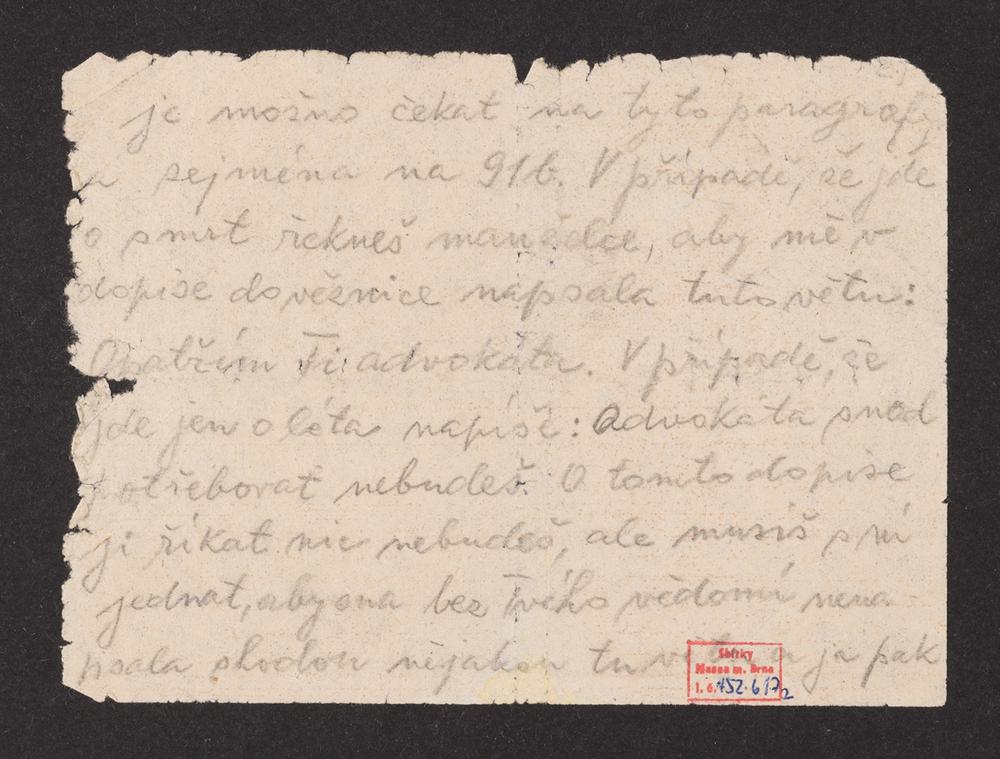 je možno čekat na tyto paragrafy
a zejména na 91b. V případě, že jde
o smrt řekneš manželce, aby mě v
dopise do věznice napsala tuto větu:
Opatřím Ti advokáta. V případě, že
jde jen o léta napíše: Advokáta snad
potřebovat nebudeš. O tomto dopise
ji říkat nic nebudeš, ale musíš s ní
jednat, aby ona bez Tvého vědomí nena-
psala shodou nějakou tu větu a já pak
Sbírky
Musea m. Brna
I. č. 152.617/2